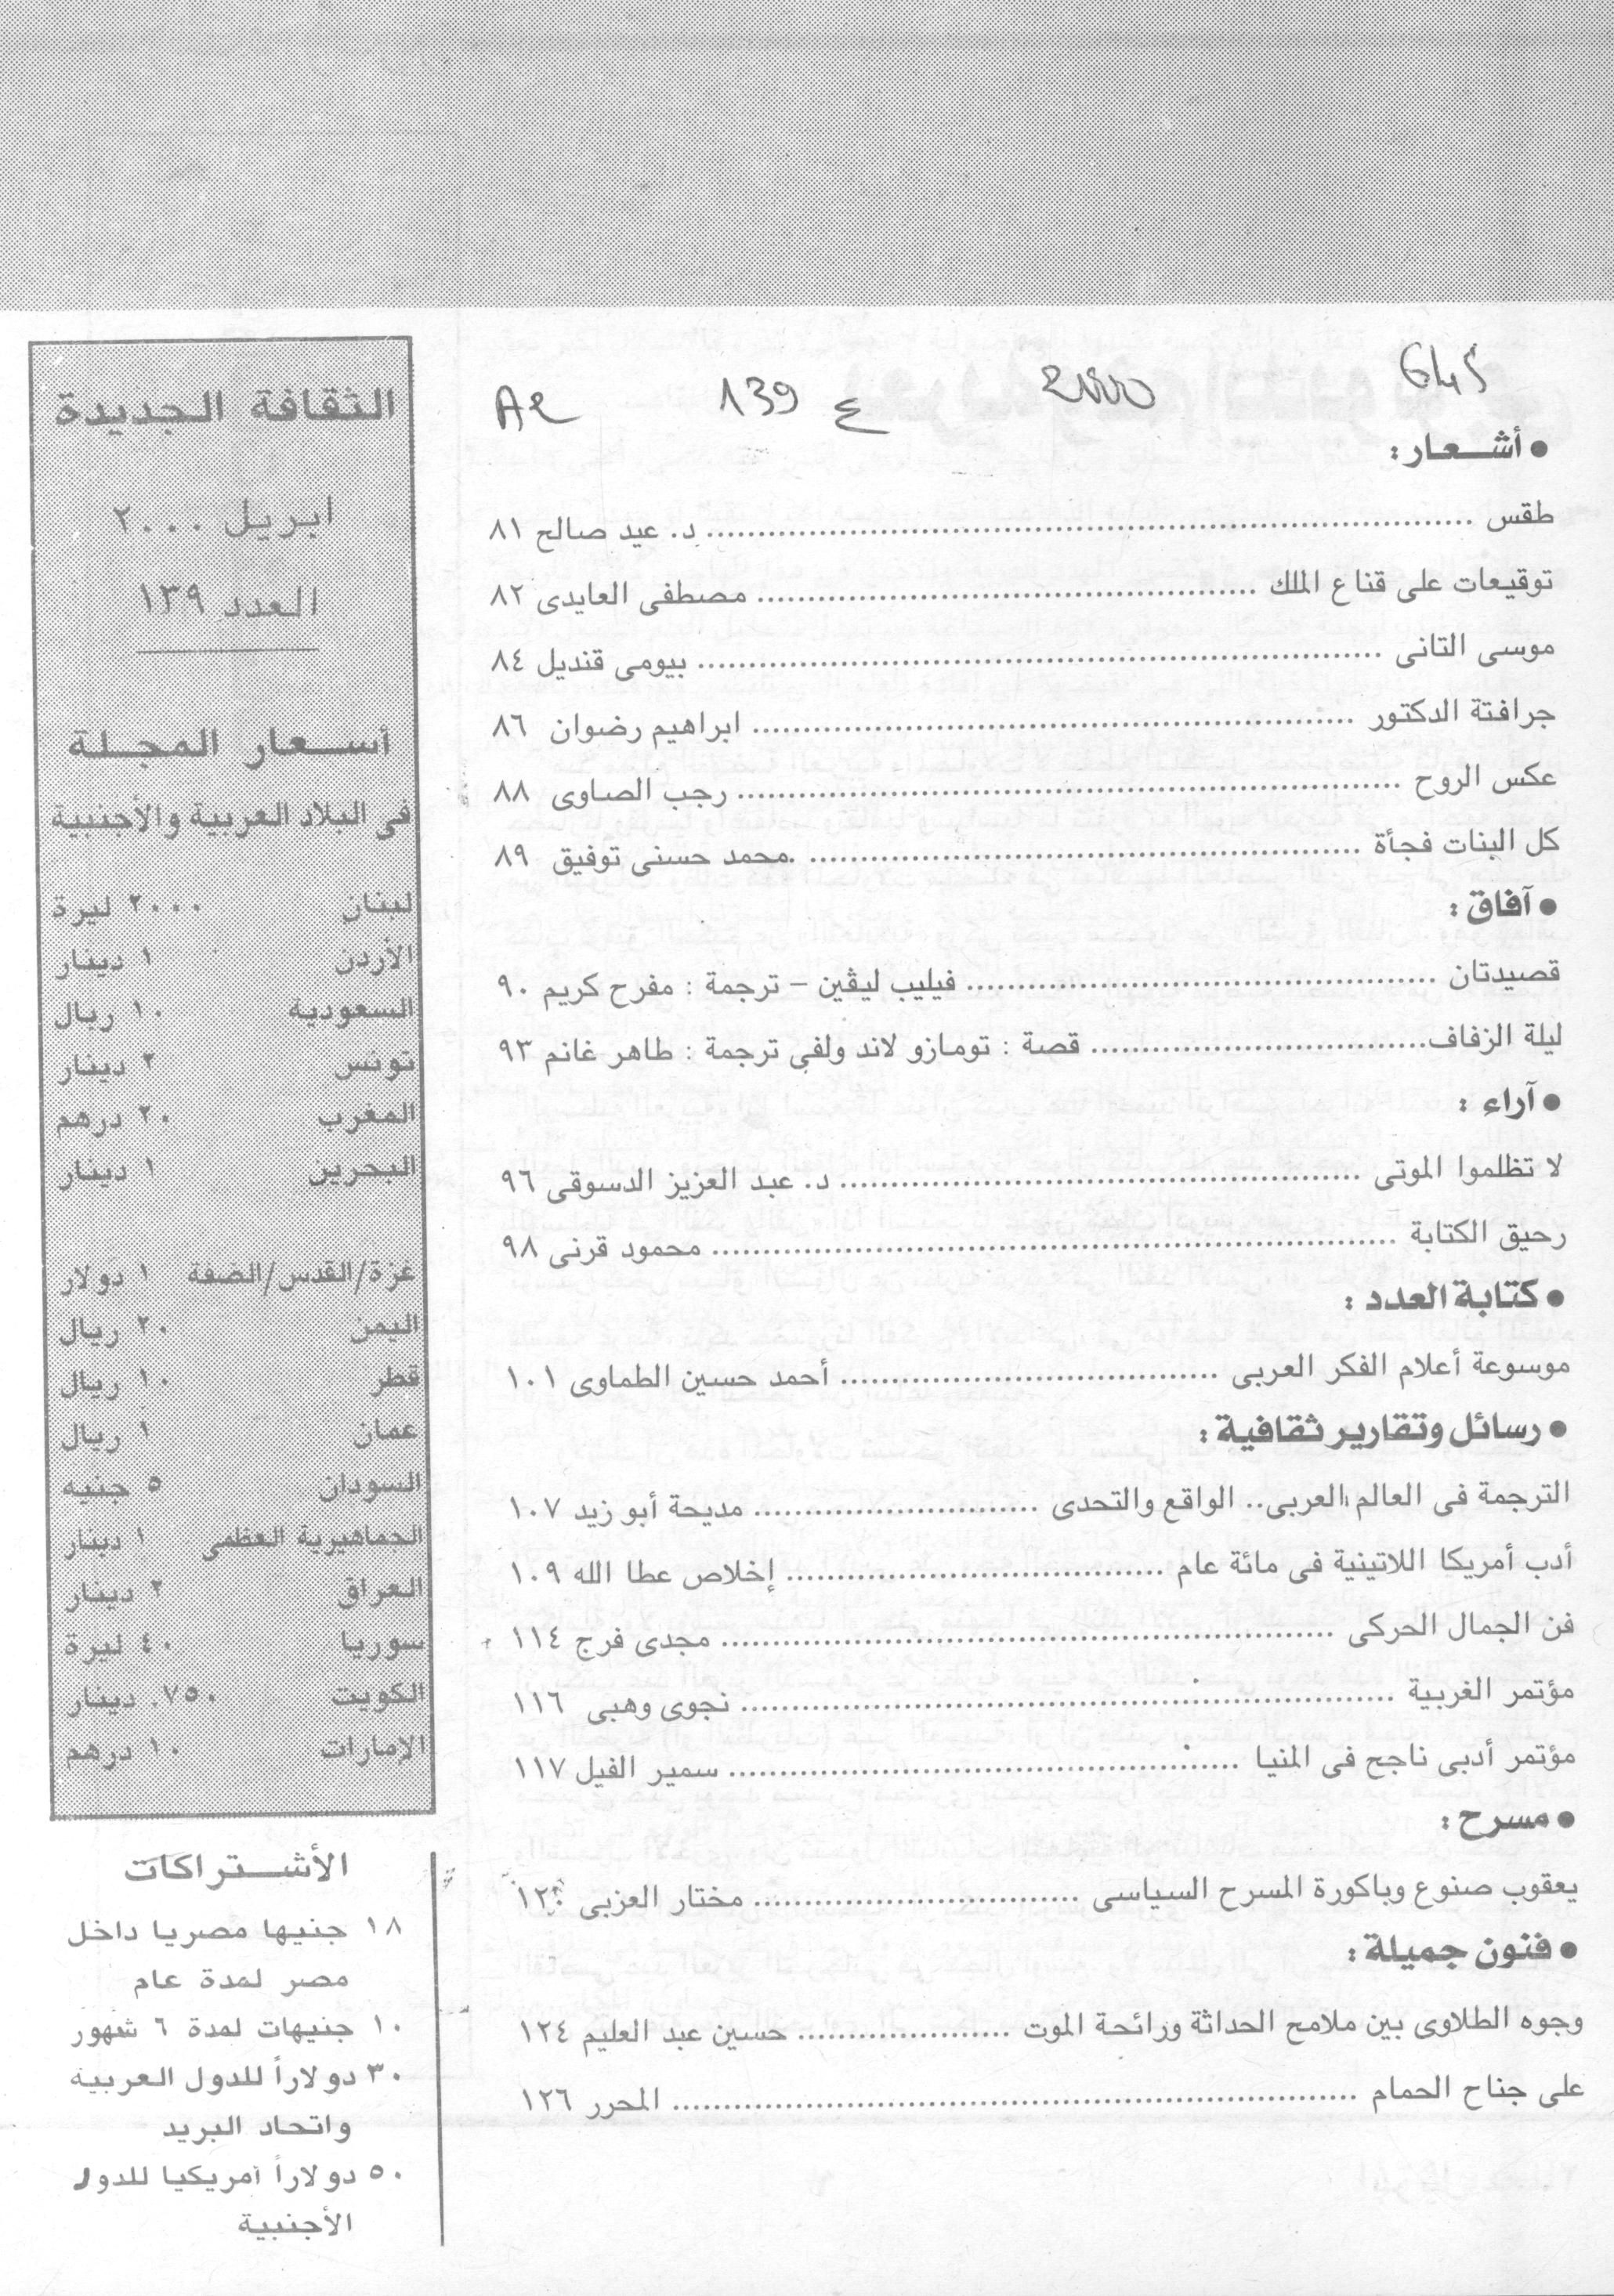 645
2000
ع 139
A2
• أشعار :
طقس ........ د. عيد صالح ٨١
توقيعات على قناع الملك ........ مصطفى العايدى ٨٢
موسى التانى ........ بيومى قنديل ٨٤
جرافتة الدكتور ........ ابراهيم رضوان ٨٦
عكس الروح ........ رجب الصاوى ٨٨
كل البنات فجأة ........ محمد حسنى توفيق ٨٩
• آفاق :
قصيدتان ........ فيليب ليڤين – ترجمة : مفرح كريم ٩٠
ليلة الزفاف ........ قصة : تومازو لاند ولفى ترجمة : طاهر غانم ٩٣
• آراء :
لا تظلموا الموتى ........ د. عبد العزيز الدسوقى ٩٦
رحيق الكتابة ........ محمود قرنى ٩٨
• كتابة العدد :
موسوعة أعلام الفكر العربى ........ أحمد حسين الطماوى ١٠١
• رسائل وتقارير ثقافية :
الترجمة فى العالم العربى.. الواقع والتحدى ........ مديحة أبو زيد ١٠٧
أدب أمريكا اللاتينية فى مائة عام ........ إخلاص عطا الله ١٠٩
فن الجمال الحركى ........ مجدى فرج ١١٤
مؤتمر الغربية ........ نجوى وهبى ١١٦
مؤتمر أدبى ناجح فى المنيا ........ سمير الفيل ١١٧
• مسرح :
يعقوب صنوع وباكورة المسرح السياسى ........ مختار العزبى
• فنون جميلة :
وجوه الطلاوى بين ملامح الحداثة ورائحة الموت ........ حسين عبد العليم ١٢٤
على جناح الحمام ........ المحرر ١٢٦
الثقافة الجديدة
ابريل ٢٠٠٠
العدد ١٣٩
أسعار المجلة
فى البلاد العربية والأجنبية
لبنان ٢٠٠٠ ليرة
الأردن ١ دينار
السعوديه ١٠ ريال
تونس ٢ دينار
المغرب ٢٠ درهم
البحرين ١ دينار
غزة/القدس/الضفة ١ دولار
اليمن ٢٠ ريال
قطر ١٠ ريال
عمان ١ ريال
السودان ٥ جنيه
الجماهيرية العظمى ١ دينار
العراق ٢ دينار
سوريا ٤٠ ليرة
الكويت ٧٥٠. دينار
الإمارات ١٠ درهم
الأشتراكات
١٨ جنيها مصريا داخل
مصر لمدة عام
١٠ جنيهات لمدة ٦ شهور
٣٠ دولاراً للدول العربيه
واتحاد البريد
٥٠ دولاراً أمريكيا للدول
الأجنبية